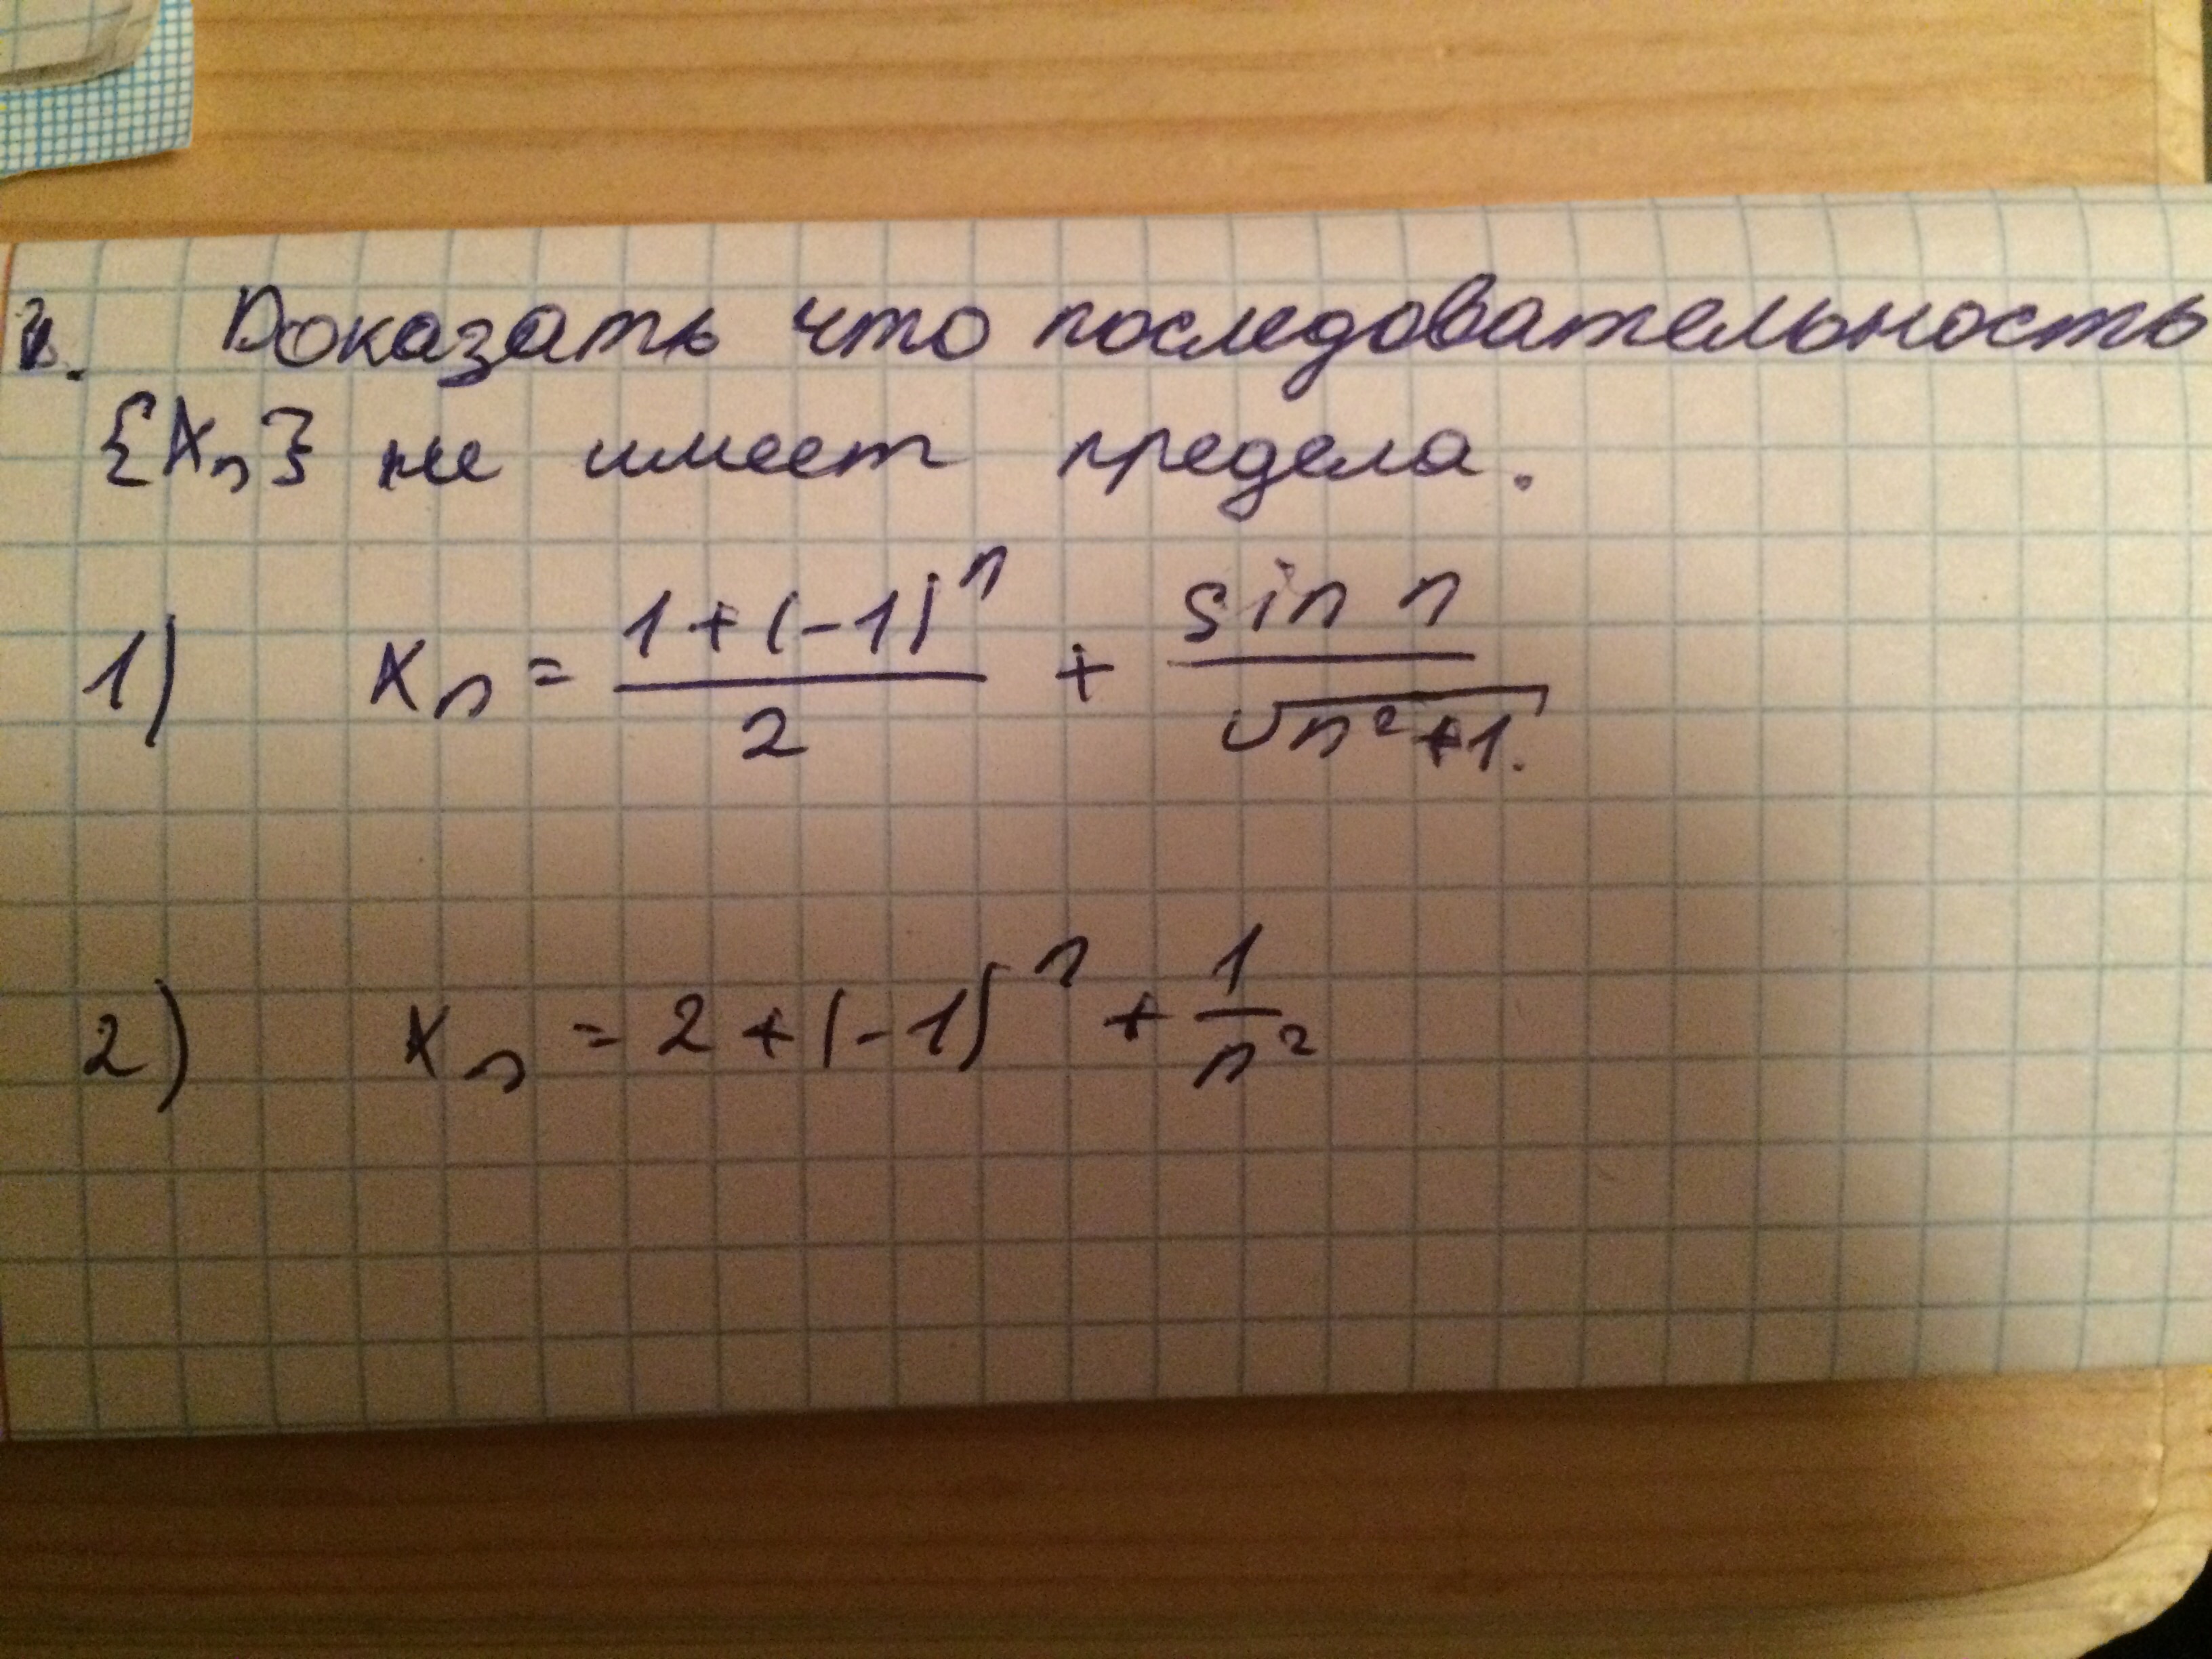 Доказать что последовательность
{xₙ} не имеет предела.
1) xₙ = (1+(-1)ⁿ)/2 + sin n/√(n²+1).
2) xₙ = 2+(-1)ⁿ + 1/n²